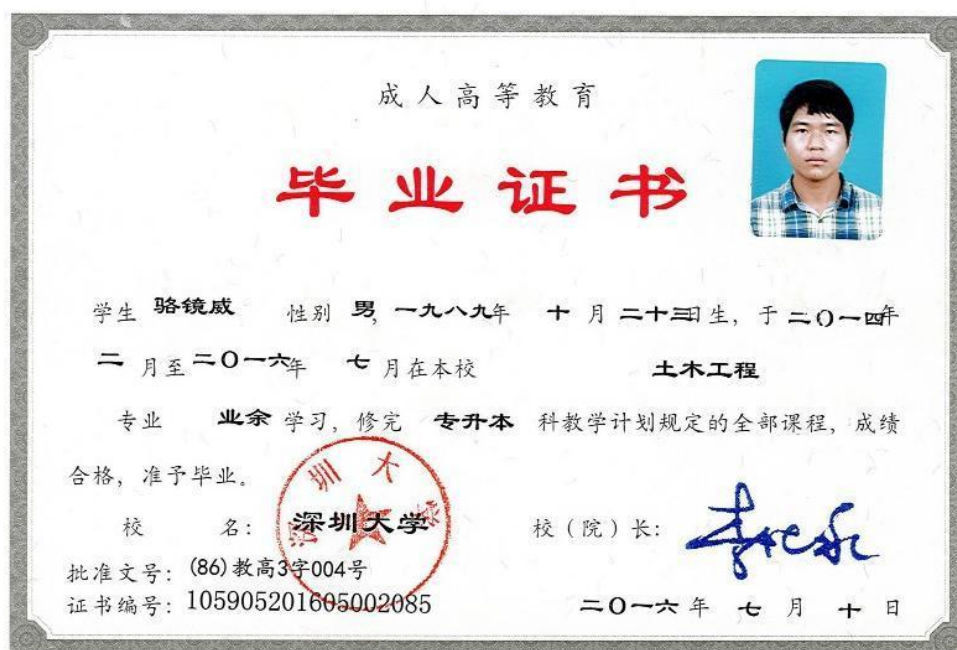 成人高等教育
毕业证书
学生 骆镜威 性别 男, 一九八九年 十月二十三日生, 于二〇一四年
二月至二〇一六年 七月在本校 土木工程
专业 业余 学习, 修完 专升本 科教学计划规定的全部课程, 成绩
合格, 准予毕业。
校 名: 深圳大学 校(院)长:
批准文号: (86)教高3字004号
证书编号: 105905201605002085 二〇一六年 七月 十日